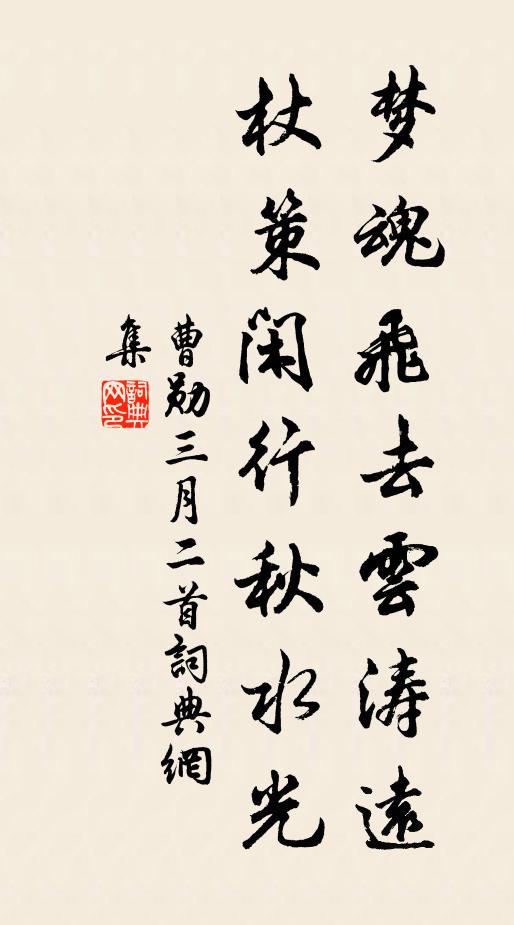 梦魂飛去雲涛遠
杖策閑行秋水光
曹勛三月二首詞典網
集
詞典网印